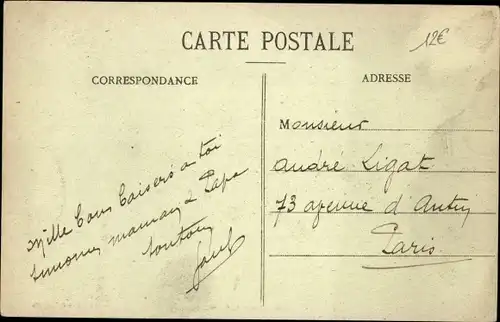 CARTE POSTALE
12€
CORRESPONDANCE
ADRESSE
Mille bons baisers a toi
maman & Papa
tonton
Monsieur
André Ligat
73 avenue d'Antin
Paris